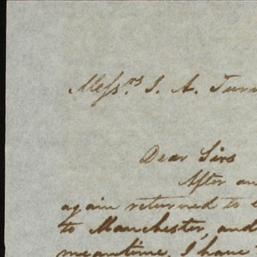 Messrs. J. A. Turn
Dear Sirs
After an
again returned to
to Manchester, and
meantime, I have